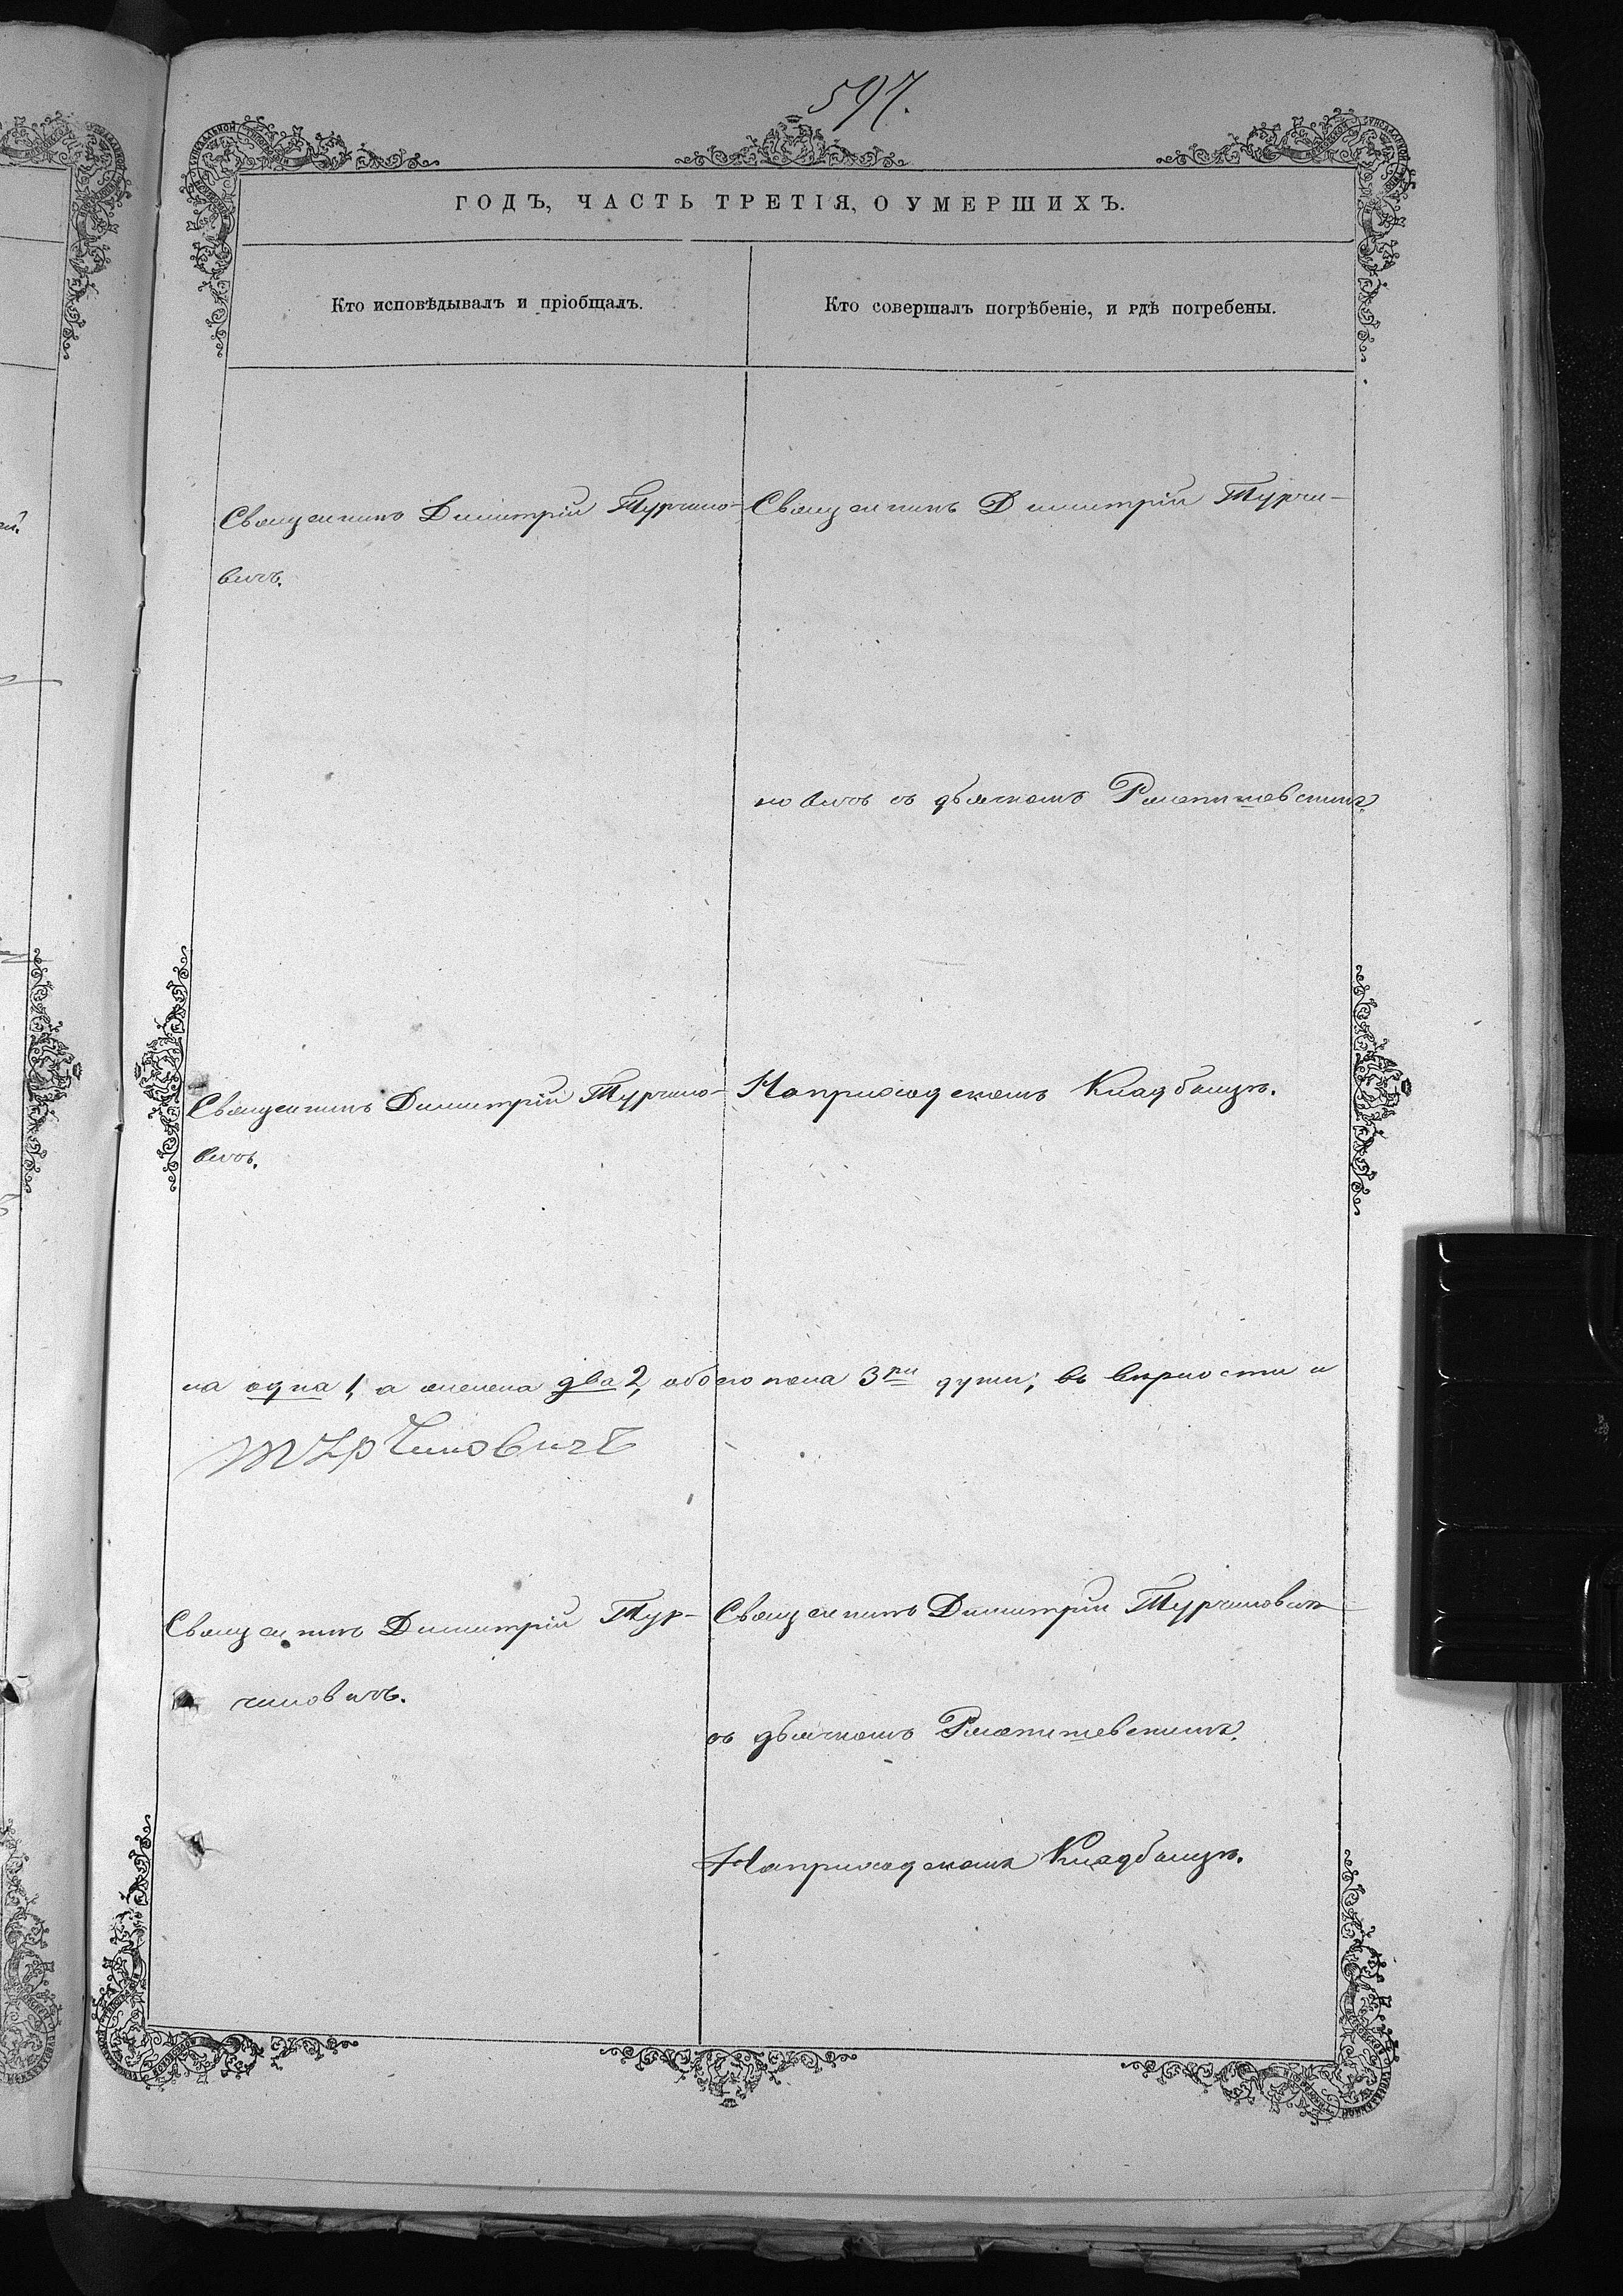 597.
ГОДЪ, ЧАСТЬ ТРЕТІЯ, О УМЕРШИХЪ.
Кто исповѣдывалъ и пріобщалъ.
Кто совершалъ погрѣбеніе, и гдѣ погребены.
Священникъ Димитрій Турчино-
вичъ.
Священникъ Димитрій Турчи-
новичъ съ дьячкомъ
Священникъ Димитрій Турчино-
вичъ.
На приходскомъ Кладбищѣ.
ла одна 1, а женска два 2, обоего пола 3ри души; въ вѣрности и
Турчиновичъ
Священникъ Димитрій Тур-
чиновичъ.
Священникъ Димитрій Турчиновичъ
съ дьячкомъ
На приходскомъ Кладбищѣ.